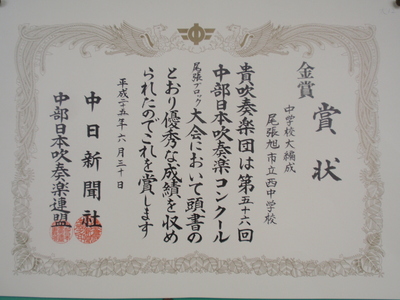 賞状
金賞
中学校大編成
尾張旭市立西中学校
貴吹奏楽団は第五十六回
中部日本吹奏楽コンクール
尾張ブロック大会において頭書の
とおり優秀な成績を収め
られたのでこれを賞します
平成二十五年六月三十日
中日新聞社
中部日本吹奏楽連盟